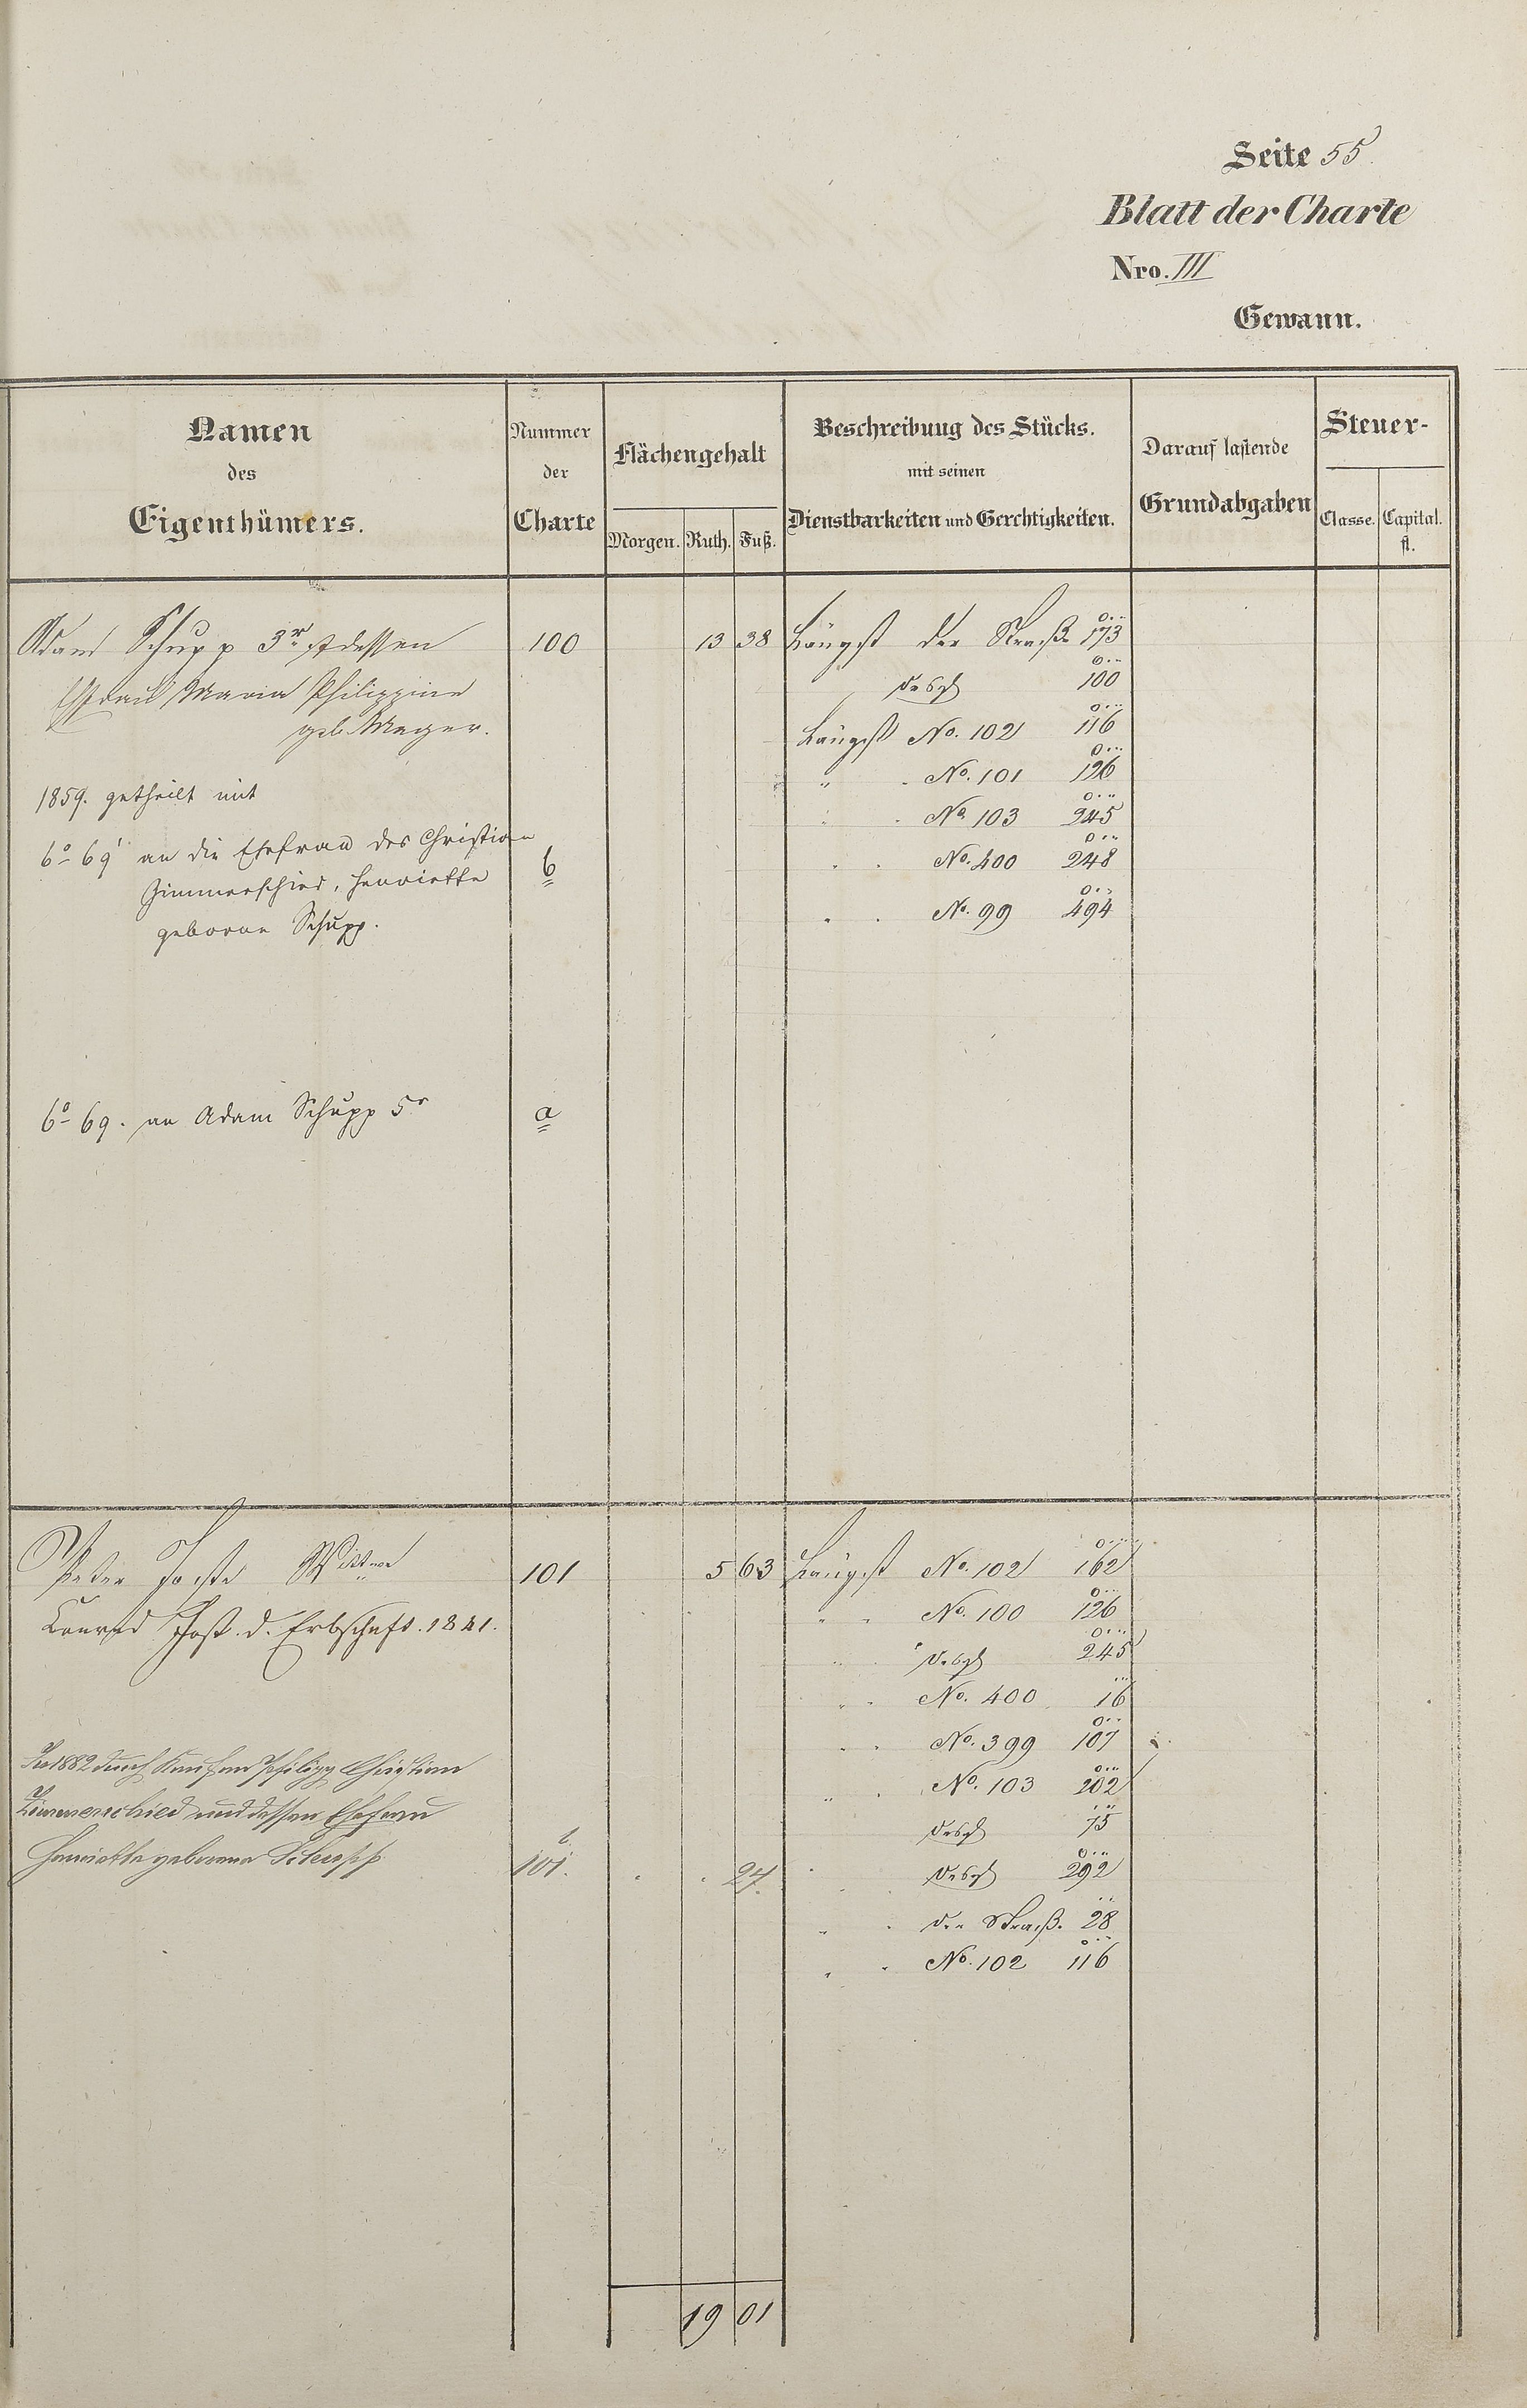 Seite 55
Blatt der Charte
Nro. III
Gewann.
Namen des Eigenthümers.
Nummer der Charte
Flächengehalt
Morgen. Ruth. Fuß.
Beschreibung des Stücks. mit seinen Dienstbarkeiten und Gerechtigkeiten.
Darauf lastende Grundabgaben
Steuer-
Classe. Capital. fl.
Adam Schupp 3r dessen 100 13 38 Längst der Straße 173
Ehefrau Maria Philippine desgl 100
geb. Mayer. Längst No. 102 116
" No. 101 126
1859. getheilt mit
" No. 103 245
6° 69' an die Ehefrau des Christian b
" No. 400 248
Zimmerschied, Henriette
" No. 99 494
geborne Schupp.
6° 69. an Adam Schupp 5r a
Peter Wittwe 101 5 63 Längst No. 102 162
Conrad Jost. d. Erbschaft. 1841. " No. 100 126
" desgl 245
" No. 400 16
" No. 399 107
1882 durch Kauf an Philipp Christian
" No. 103 202
Zimmerschied und dessen Ehefrau
desgl 75
Henriette geborene Schupp 101. . . 27. desgl 292
" der Straße 28
" No. 102 116
19 01